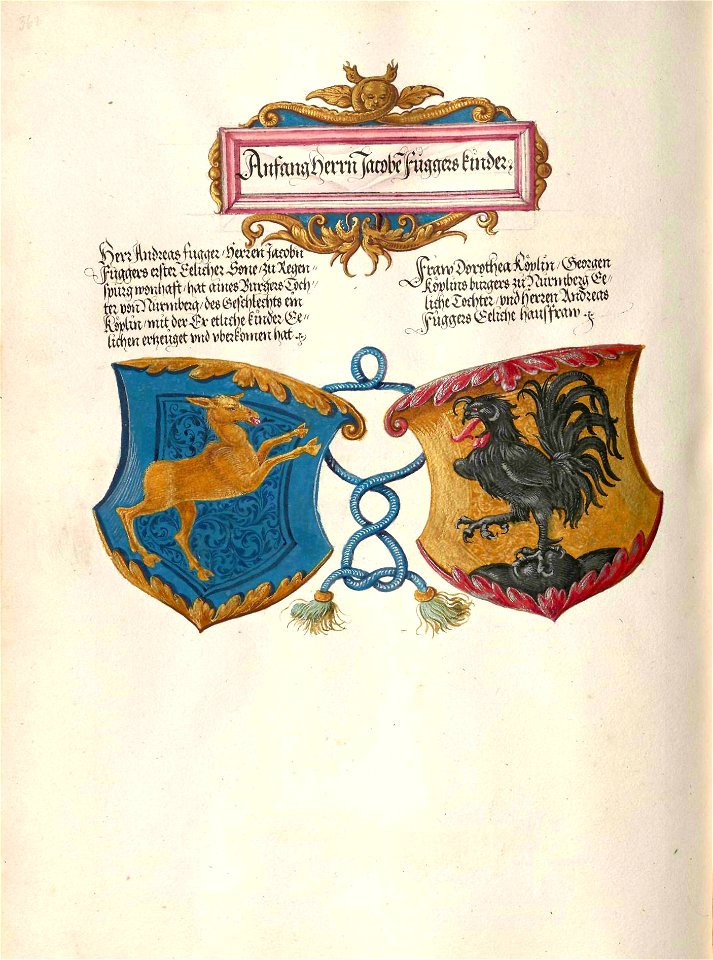 Anfang Herrn Jacoben Fuggers kinder.
Herr Andreas Fugger / Herren Jacobn
Fuggers erster Eelicher Sone / zu Regen-
spurg wonhafft / hat aines Burgers Toch-
ter von Nürmberg / des Geschlechts ein
Köplin / mit der Er etliche kinder Ee-
lichen erzeuget vnd vberkomen hat.
Fraw Dorothea Köplin / Georgen
Köplins burgers zu Nürmberg Ee-
liche Tochter / vnd Herren Andreas
Fuggers Eeliche hausfraw.